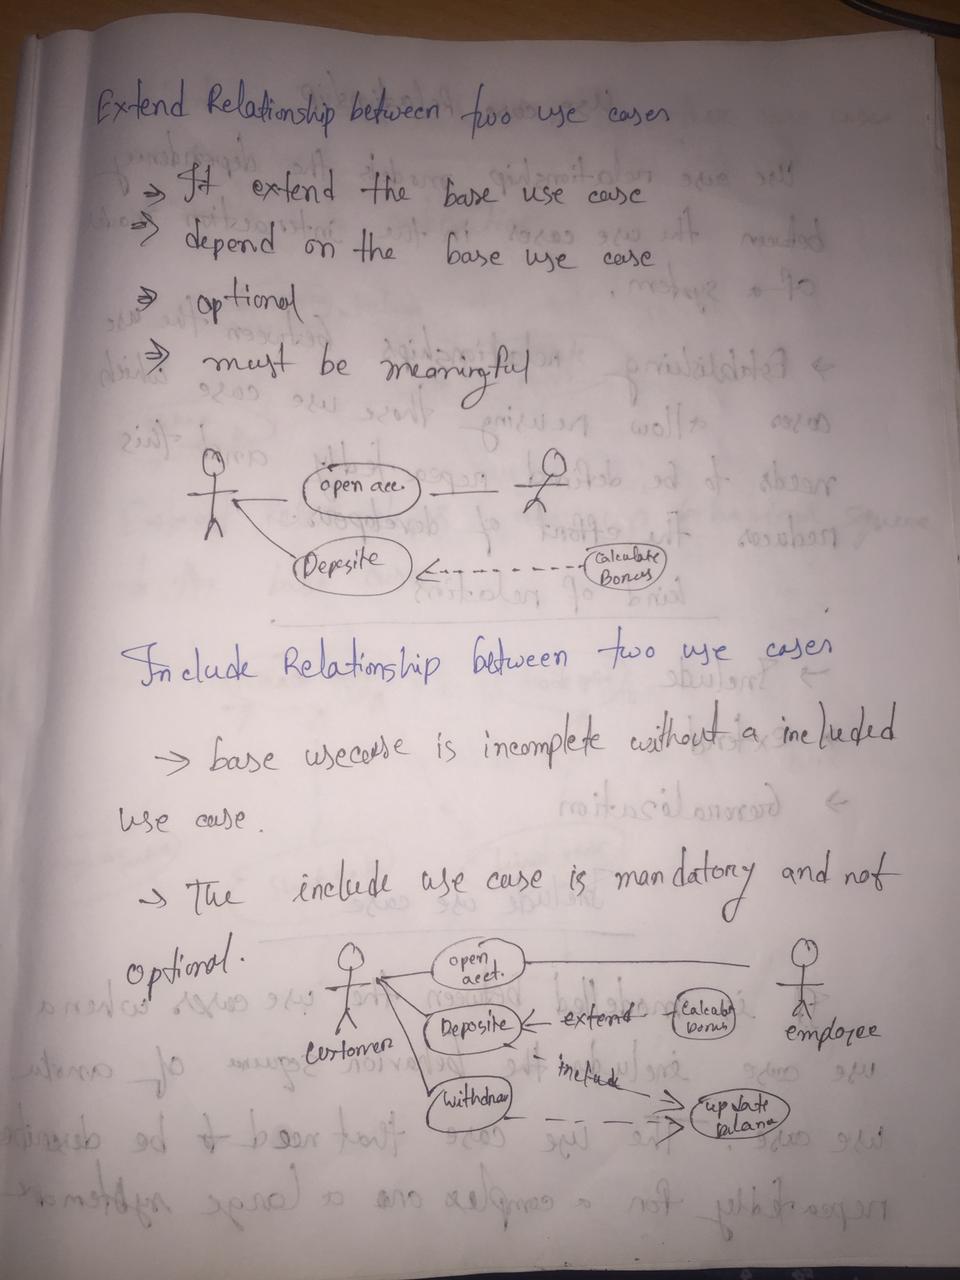 Extend Relationship between two use cases
⇒ It extend the base use case
⇒ depend on the base use case
⇒ optional
⇒ must be meaningful
open acc.
Deposite
Calculate
Bonus
Include Relationship between two use cases
→ base usecase is incomplete without a included
use case.
→ The include use case is mandatory and not
optional.
open
acct.
Deposite
extend
Calculate
bonus
customer
employee
include
withdraw
update